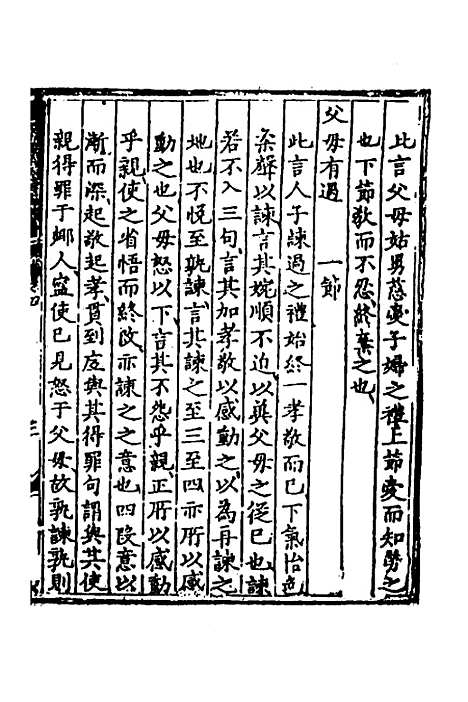 此言父母姑舅慈愛子婦之禮上節愛而知勞之
也下節教而不忍終棄之也
父母有過　一節
此言人子諫過之禮始終一孝敬而已下氣怡色
柔聲以諫言其婉順不迫以冀父母之從已也諫
若不入三句言其加孝敬以感動之以為再諫之
地也不悅至孰諫言其諫之至三至四亦所以感
動之也父母怒以下言其不怨乎親正所以感動
乎親使之省悟而終改亦諫之之意也四段意以
漸而深起敬起孝貫到底與其得罪句謂與其使
親得罪于鄉人寧使已見怒于父母故孰諫孰則